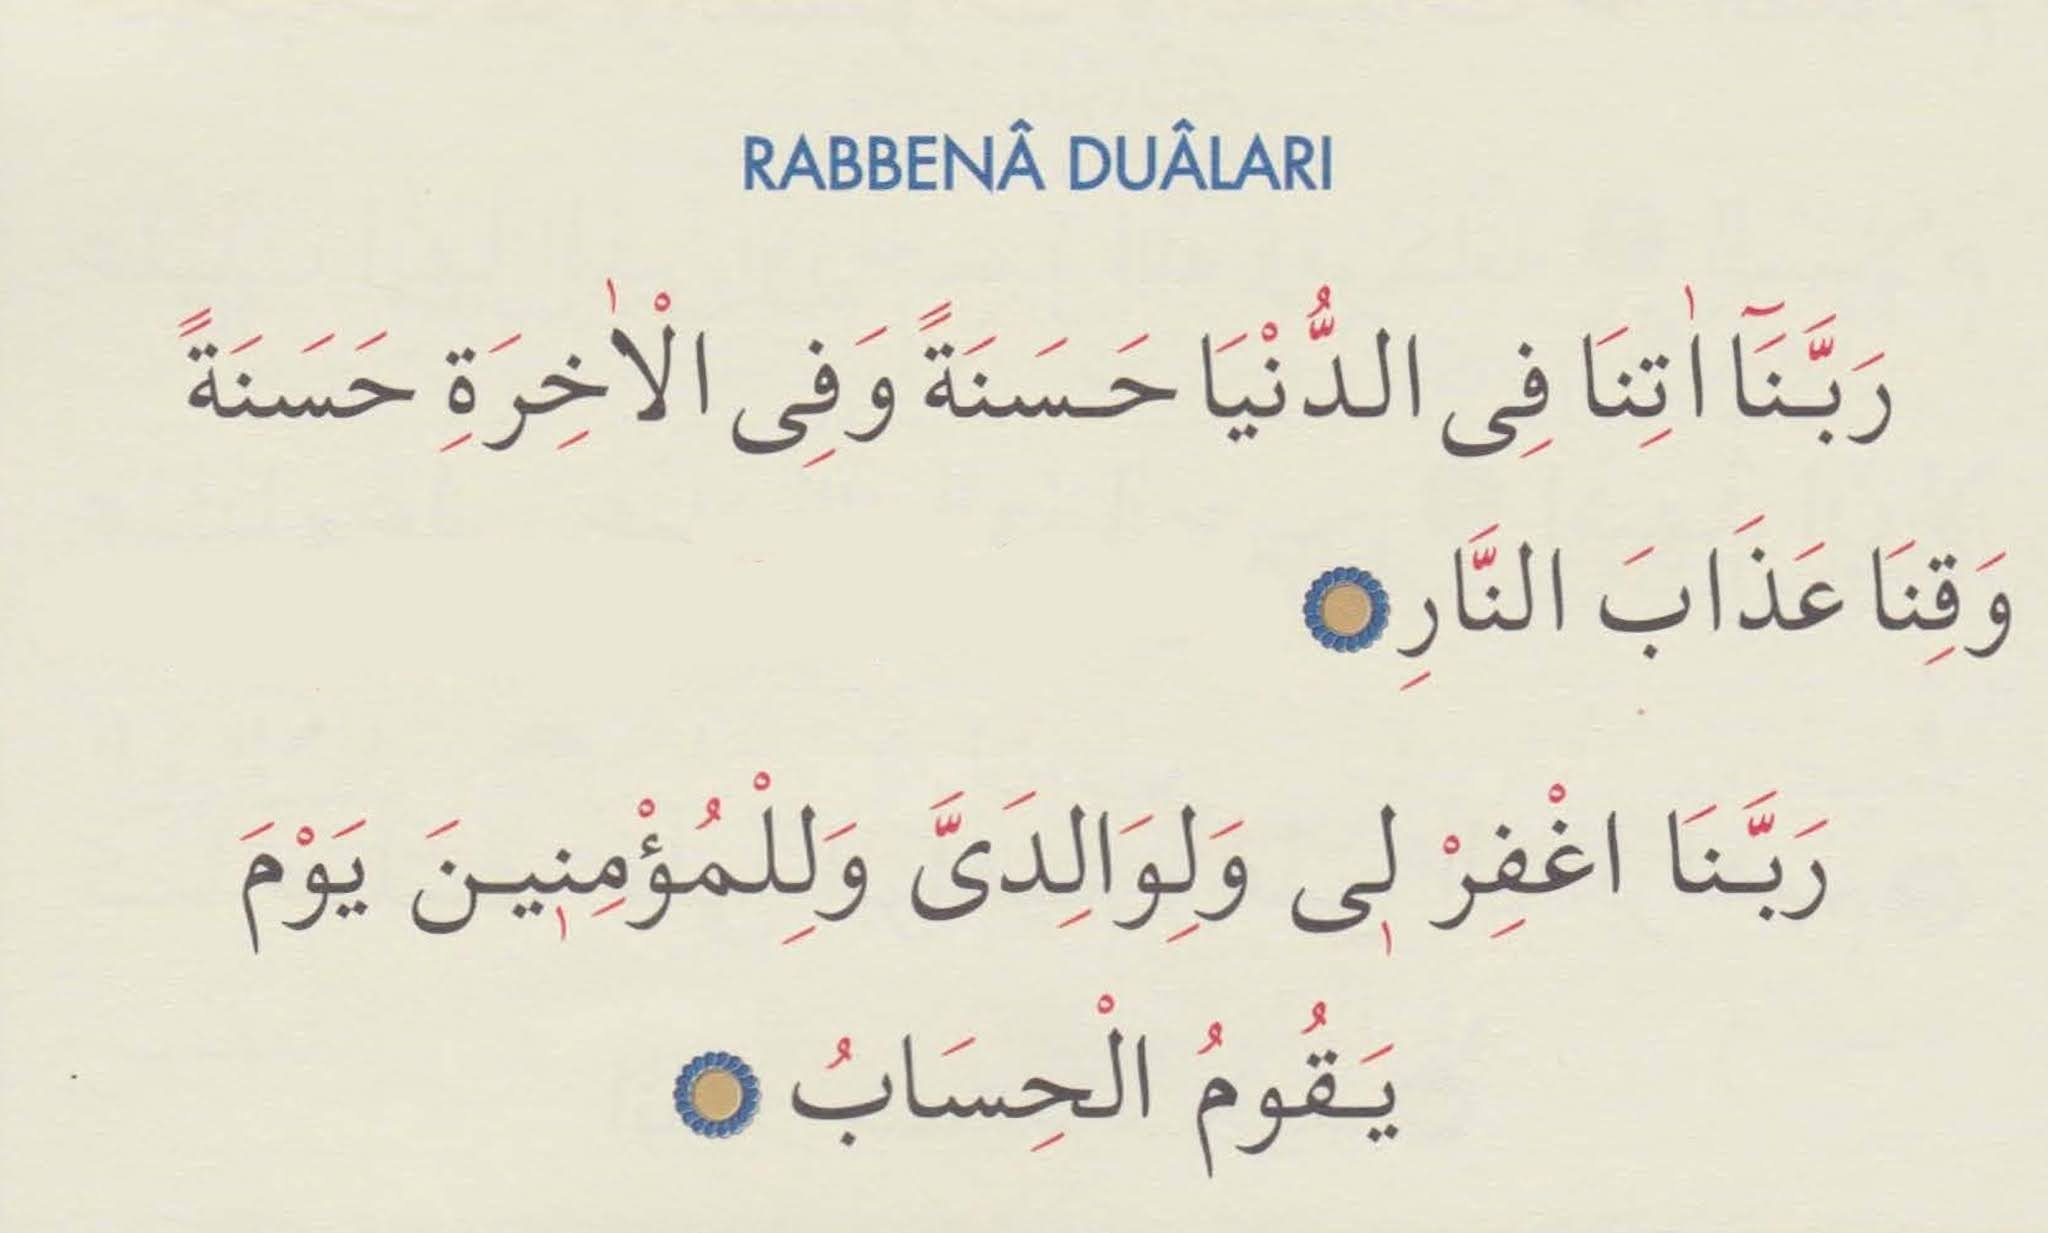 RABBENÂ DUÂLARI
رَبَّنَٓا اٰتِنَا فِى الدُّنْيَا حَسَنَةً وَفِى الْاٰخِرَةِ حَسَنَةً
وَقِنَا عَذَابَ النَّارِ
رَبَّنَا اغْفِرْ ل۪ى وَلِوَالِدَىَّ وَلِلْمُؤْمِن۪ينَ يَوْمَ
يَقُومُ الْحِسَابُ